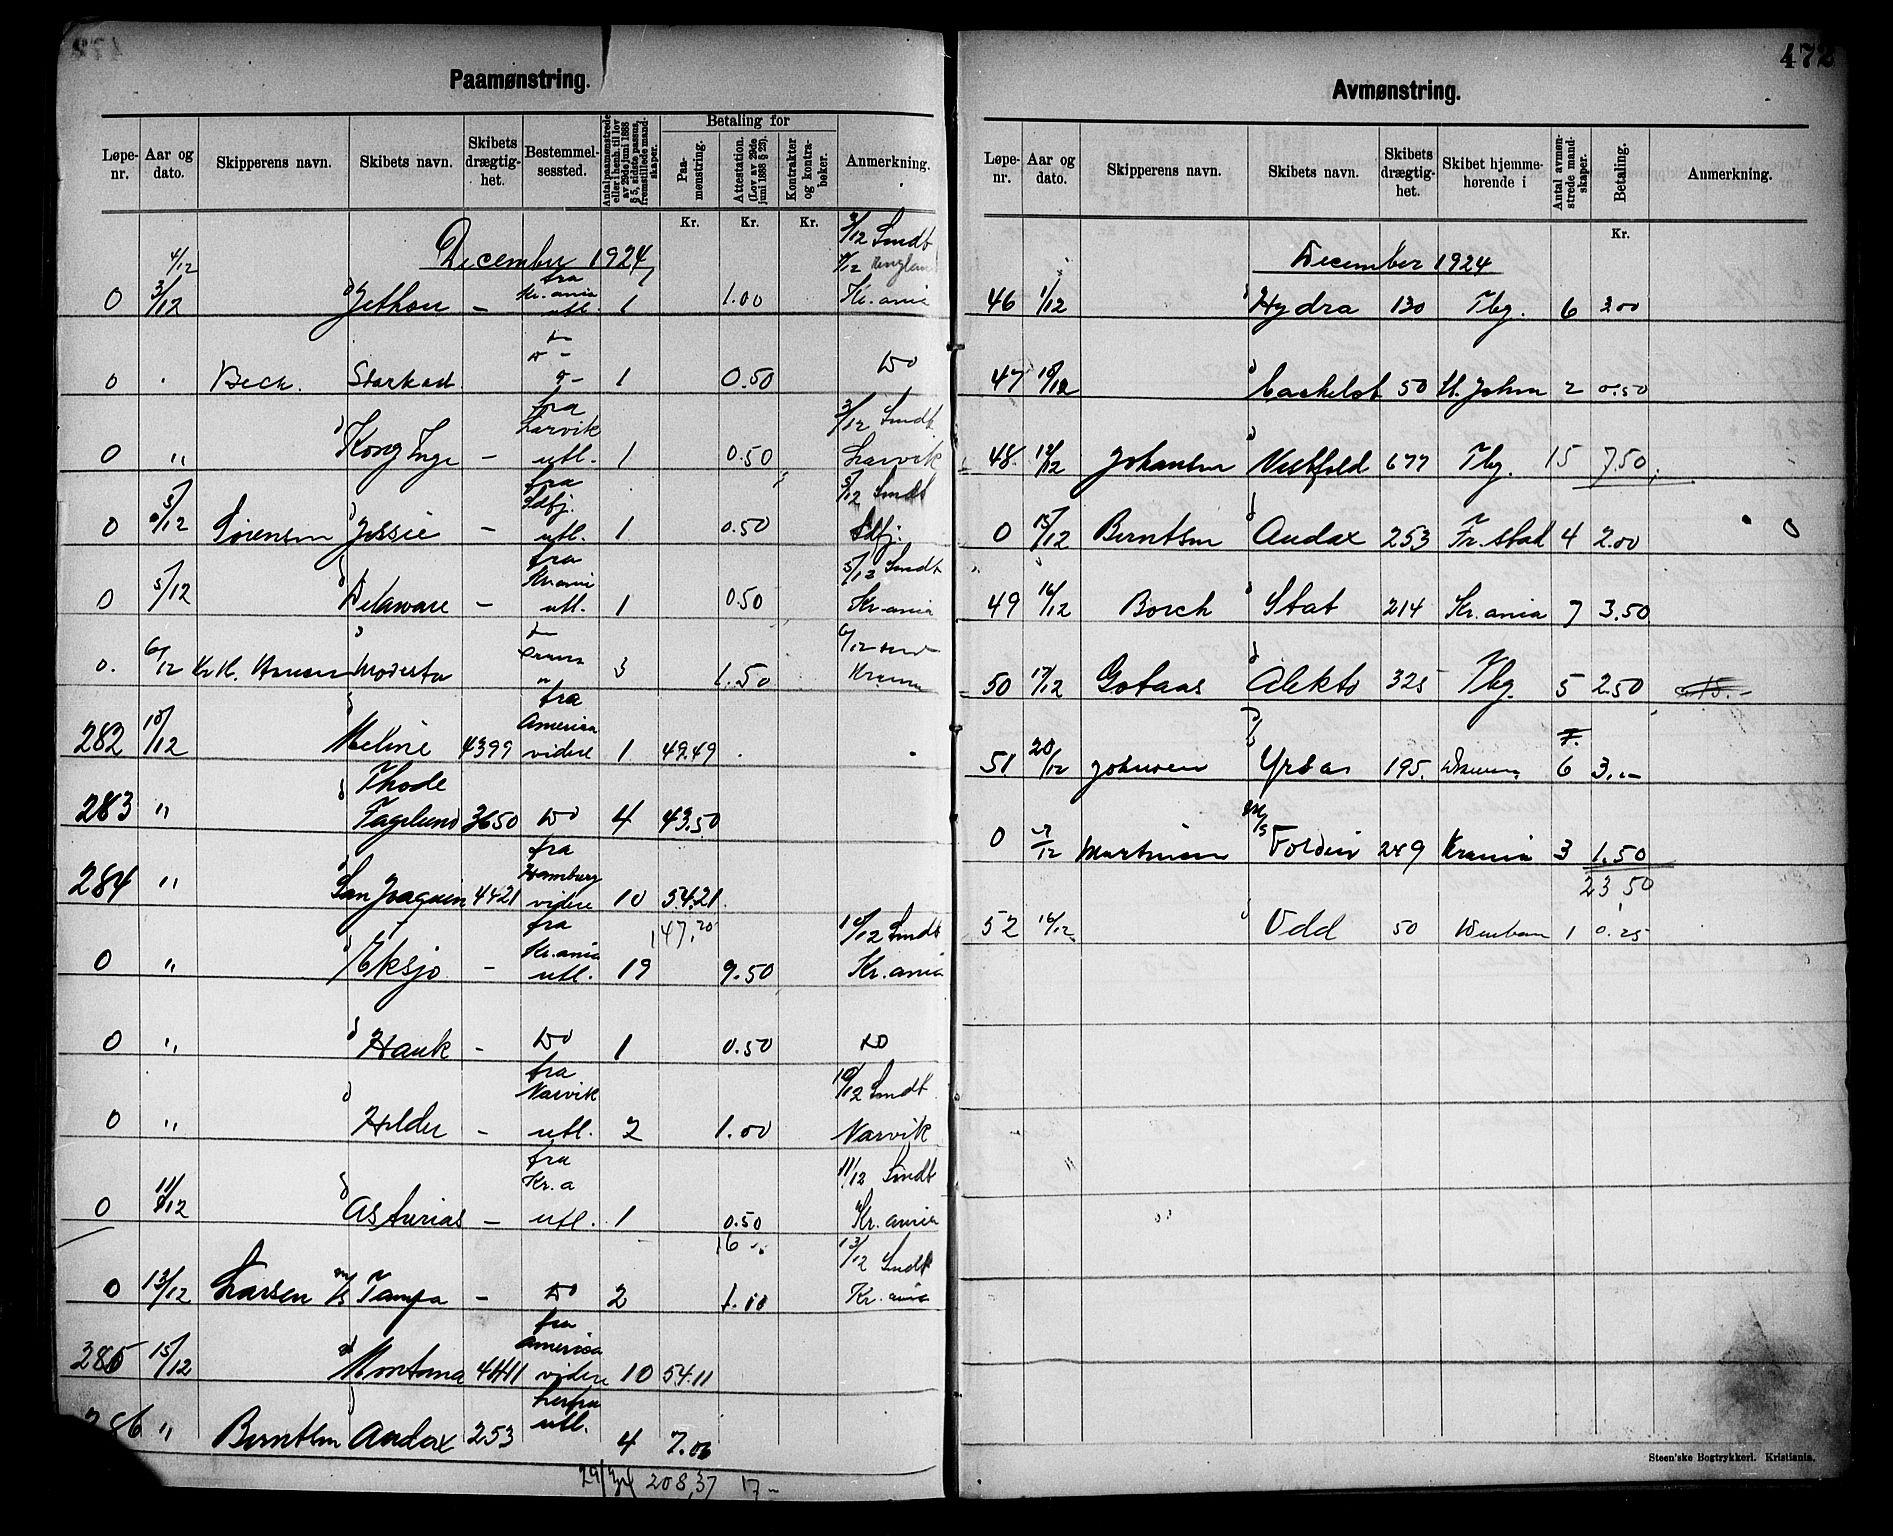 472
Paamønstring.
Løpe-nr. Aar og dato. Skipperens navn. Skibets navn. Skibets drægtig-het. Bestemmel-sessted. Antal paamønstrede eller i henh. til lov av 29de juni 1888 § 5, sidste passus, fremstillede mand-skaper. Betaling for Paa-mønstring. Attestation. (Lov av 29de juni 1888 § 23). Kontrakter og kontra-bøker. Anmerkning.
Kr. Kr. Kr.
December 1924
4/12 3/12 Smdt
0 3/12 fra Kr.ania utl. 1 1.00 Kr.ania
0 Bech. Starkad 1 0.50 Do
0 " Kong Inge - fra Larvik utl. 1 0.50 3/12 Smdt Larvik
0 5/12 Sørensen Jessie - fra Sdfj. utl. 1 0.50 5/12 Smdt Sdfj.
0 5/12 Delaware - fra Kr.ania utl. 1 0.50 5/12 Smdt Kr.ania
0. 6/12 Hansen Modesta 3 1.50 6/12
282 10/12 Meline 4399 fra America videre 1 49.49
283 " Thode Fagelund 3650 Do 4 43.50
284 " San Joaquin 4421 fra Hamburg videre 10 54.21
147.20
0 " Eksjo - fra Kr.ania utl. 19 9.50 10/12 Smdt Kr.ania
0 " Hauk - Do 1 0.50 Do
0 " Hilder - fra Narvik utl. 2 1.00 10/12 Smdt Narvik
0 11/12 Asturias - fra Kr.a utl. 1 0.50 11/12 Smdt Kr.ania
16
0 13/12 Larsen M/S Tampa - Do 2 1.00 13/12 Smdt Kr.ania
285 15/12 Montana 4411 fra America videre 10 54.11
286 " Berntsen Audax 253 herfra utl. 4 7.06
208,37 17 -
Avmønstring.
Løpe-nr. Aar og dato. Skipperens navn. Skibets navn. Skibets drægtig-het. Skibet hjemme-hørende i Antal avmøn-strede mand-skaper. Betaling. Anmerkning.
Kr.
December 1924
46 1/12 Hydra 130 Tbg. 6 300
47 10/12 Cachelot 50 St. Johns 2 0.50
48. 12/12 Johansen Vestfold 677 Tbg. 15 7.50
0 15/12 Berntsen Audax 253 Fr.stad 4 2.00 0
49 16/12 Borch Stat 214 Kr.ania 7 3.50
50 17/12 Gotaas Alekto 325 Tbg. 5 2.50
51 20/12 Johnsen 195. 6 3.-
0 M/S 249 Krania 3 1.50
23,50
52 16/12 Odd 50 1 0.25
Steen'ske Bogtrykkeri. Kristiania.